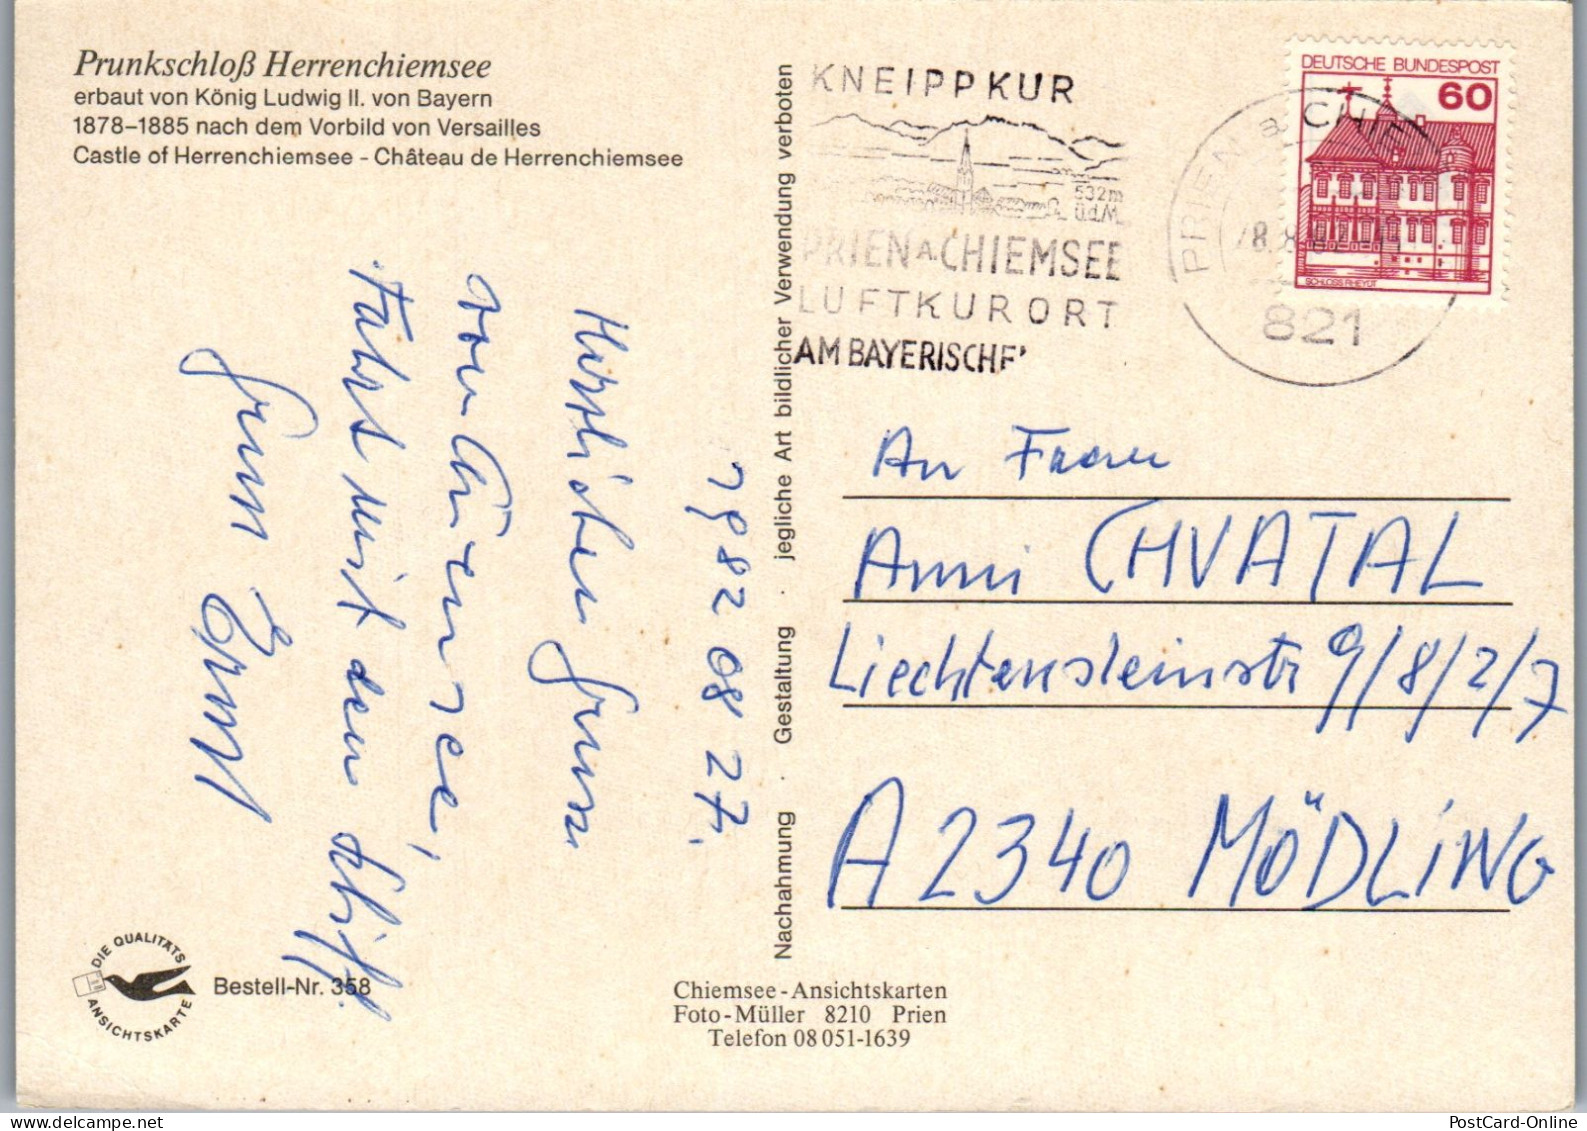 Prunkschloß Herrenchiemsee
erbaut von König Ludwig II. von Bayern
1878–1885 nach dem Vorbild von Versailles
Castle of Herrenchiemsee - Château de Herrenchiemsee
KNEIPPKUR
532m
ü.d.M.
PRIEN A. CHIEMSEE
LUFTKURORT
AM BAYERISCHE
DEUTSCHE BUNDESPOST
60
SCHLOSS RHEYDT
PRIEN a CHIE
821
Nachahmung · Gestaltung · jegliche Art bildlicher Verwendung verboten
1982 08 27.
Herzlichen Gruss
vom Chiemsee,
Fahrt mit dem Schiff.
Gruss Ernst
An Frau
Anni CHVATAL
Liechtensteinstr 9/8/2/7
A 2340 MÖDLING
DIE QUALITÄTS
ANSICHTSKARTE
Bestell-Nr. 358
Chiemsee-Ansichtskarten
Foto-Müller 8210 Prien
Telefon 08 051-1639
PostCard-Online